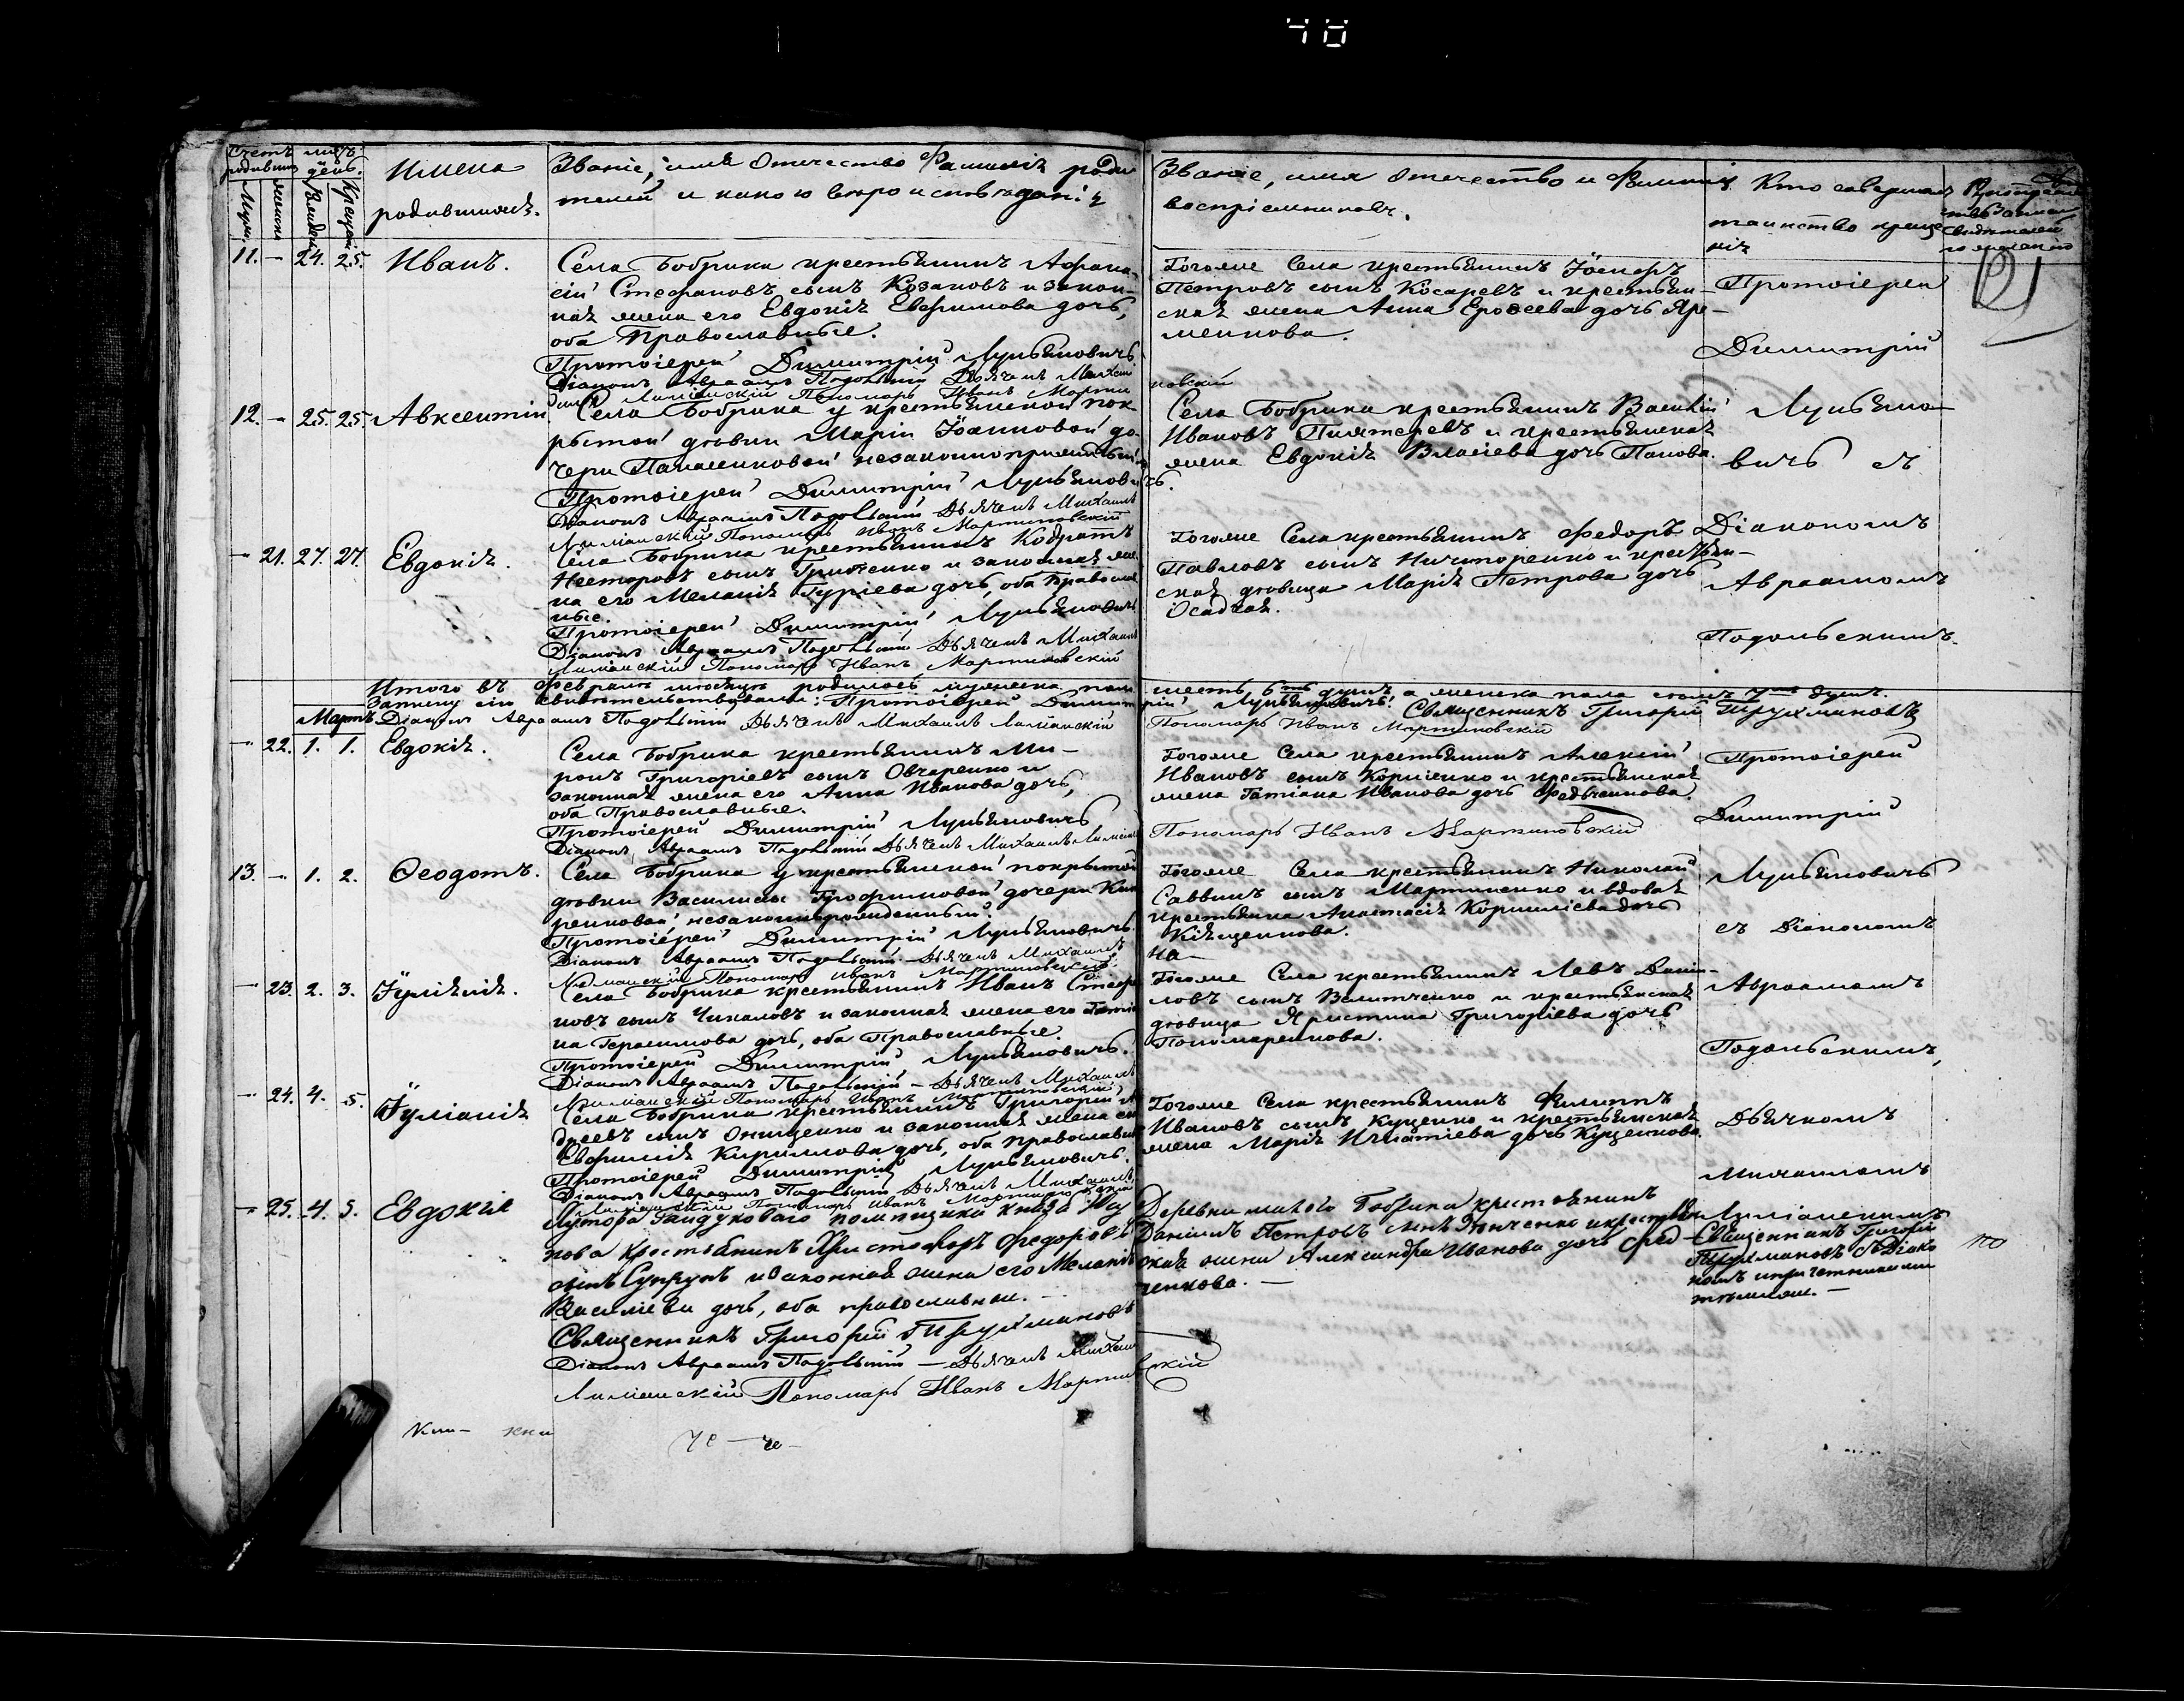 40
Счетъ родившихся
Мужск. женска
мѣс. день.
Рожден. Крещен.
Имена
родившихся.
Званіе, имя отечество Фамилія роди-
телей и какого вѣроисповѣданія
Званіе, имя отечество и Фамилія
воспріемниковъ.
Кто совершалъ
таинство креще
нія
11. — 24. 25. Иванъ.
Села Бобрика крестьянинъ Афана-
сій Стефановъ сынъ Козаковъ и закон-
ная жена его Евдокія Евфимова дочь,
оба Православные.
Протоіерей Димитрій Лукьяновичъ
Діаконъ Авраамъ Подольскій Дьячекъ Михаилъ
Лиманскій Пономарь Иванъ Марти
новскій
Тогоже Села крестьянинъ Іосифъ
Петровъ сынъ Косаревъ и крестьян-
ская жена Анна Ерофеева дочь Яре-
менкова.
Протоіерей
Димитрій
Лукьяно-
вичъ съ
Діакономъ
Авраамомъ
Подольскимъ.
12. — 25. 25 Авксентій
Села Бобрика у крестьянской пок-
рытой дѣвки Маріи Іоанновой до-
чери Панасенковой незаконнорожденный
Протоіерей Димитрій Лукьяновичъ.
Діаконъ Авраамъ Подольскій Дьячекъ Михаилъ
Лиманскій Пономарь Иванъ Мартиновскій
Села Бобрика крестьянинъ Василій
Ивановъ Пивтеревъ и крестьянская
жена Евдокія Власіева дочь Панова.
— 21. 27. 27. Евдокія.
Села Бобрика крестьянинъ Кодратъ
Несторовъ сынъ Гриненко и законная же
на его Меланія Гуріева дочь, оба православ
ные.
Протоіерей Димитрій Лукьяновичъ
Діаконъ Авраамъ Подольскій Дьячекъ Михаилъ
Лиманскій Пономарь Иванъ Мартиновскій
Тогоже Села крестьянинъ Федоръ
Павловъ сынъ Ничипоренко и крестьян-
ская дѣвица Марія Петрова дочь
Осадчая.
Итого въ Февралѣ мѣсяцѣ родилось мужеска пола шесть 6ть душъ а женска пола семь 7мь душъ.
Запись сію свидѣтельствовали: Протоіерей Димитрій Лукьяновичъ. Священникъ Григорій Трухмановъ
Діаконъ Авраамъ Подольскій Дьячекъ Михаилъ Лиманскій Пономарь Иванъ Мартиновскій
Мартъ
— 22. 1. 1. Евдокія.
Села Бобрика крестьянинъ Ми-
ронъ Григоріевъ сынъ Овчаренко и
законная жена его Анна Иванова дочь,
оба Православные.
Протоіерей Димитрій Лукьяновичъ
Діаконъ Авраамъ Подольскій Дьячекъ Михаилъ Лиманскій
Пономарь Иванъ Мартиновскій
Тогоже Села крестьянинъ Алексій
Ивановъ сынъ Корніенко и крестьянская
жена Татіана Иванова дочь Федченкова.
Протоіерей
Димитрій
Лукьяновичъ
съ Діакономъ
Авраамомъ
Подольскимъ,
Дьячкомъ
Михаиломъ
Лиманскимъ
13. — 1. 2. Ѳеодотъ.
Села Бобрика у крестьянской покрытой
дѣвки Василисы Трофимовой дочери Кип
ренковой, незаконнорожденный.
Протоіерей Димитрій Лукьяновичъ.
Діаконъ Авраамъ Подольскій. — Дьячекъ Михаилъ
Лиманскій Пономарь Иванъ Мартиновскій.
Тогоже Села крестьянинъ Николай
Саввинъ сынъ Мартиненко и вдовая
крестьянка Анастасія Корнилієва дочь
Кіященкова.
— 23. 2. 3. Іуліанія.
Села Бобрика крестьянинъ Иванъ Стефа
новъ сынъ Чикаловъ и законная жена его Татіа
на Герасимова дочь, оба Православные.
Протоіерей Димитрій Лукьяновичъ.
Діаконъ Авраамъ Подольскій — Дьячекъ Михаилъ
Лиманскій Пономарь Иванъ Мартиновскій
Тогоже Села крестьянинъ Левъ Дани-
ловъ сынъ Велитченко и крестьянская
дѣвица Христина Григоріева дочь
Пономаренкова.
— 24. 4. 5. Іуліанія
Села Бобрика крестьянинъ Григорій Ан
дреевъ сынъ Онищенко и законная жена его
Евфимія Кирилова дочь, оба православные
Протоіерей Димитрій Лукьяновичъ.
Діаконъ Авраамъ Подольскій Дьячекъ Михаилъ
Лиманскій Пономарь Иванъ Мартиновскій
Тогоже Села крестьянинъ Филиппъ
Ивановъ сынъ Куценко и крестьянская
жена Марія Игнатіева дочь Куценкова.
— 25. 4. 5. Евдокія
Хутора Гайдуковаго помѣщика князя
крестьянинъ Христофоръ Федоровъ
сынъ Супрунъ и законная жена его Меланія
Василіева дочь, оба православныи. —
Священникъ Григорій Трухмановъ
Діаконъ Авраамъ Подольскій — Дьячекъ Михаилъ
Лиманскій Пономарь Иванъ Мартиновскій
Деревни малого Бобрика крестьянинъ
Даніилъ Петровъ сынъ Зинченко и крестьян
ская жена Александра Иванова дочь Фед-
ченкова. —
Священникъ Григорій
Трухмановъ съ Діако
номъ и причетниками
тѣмижъ. —